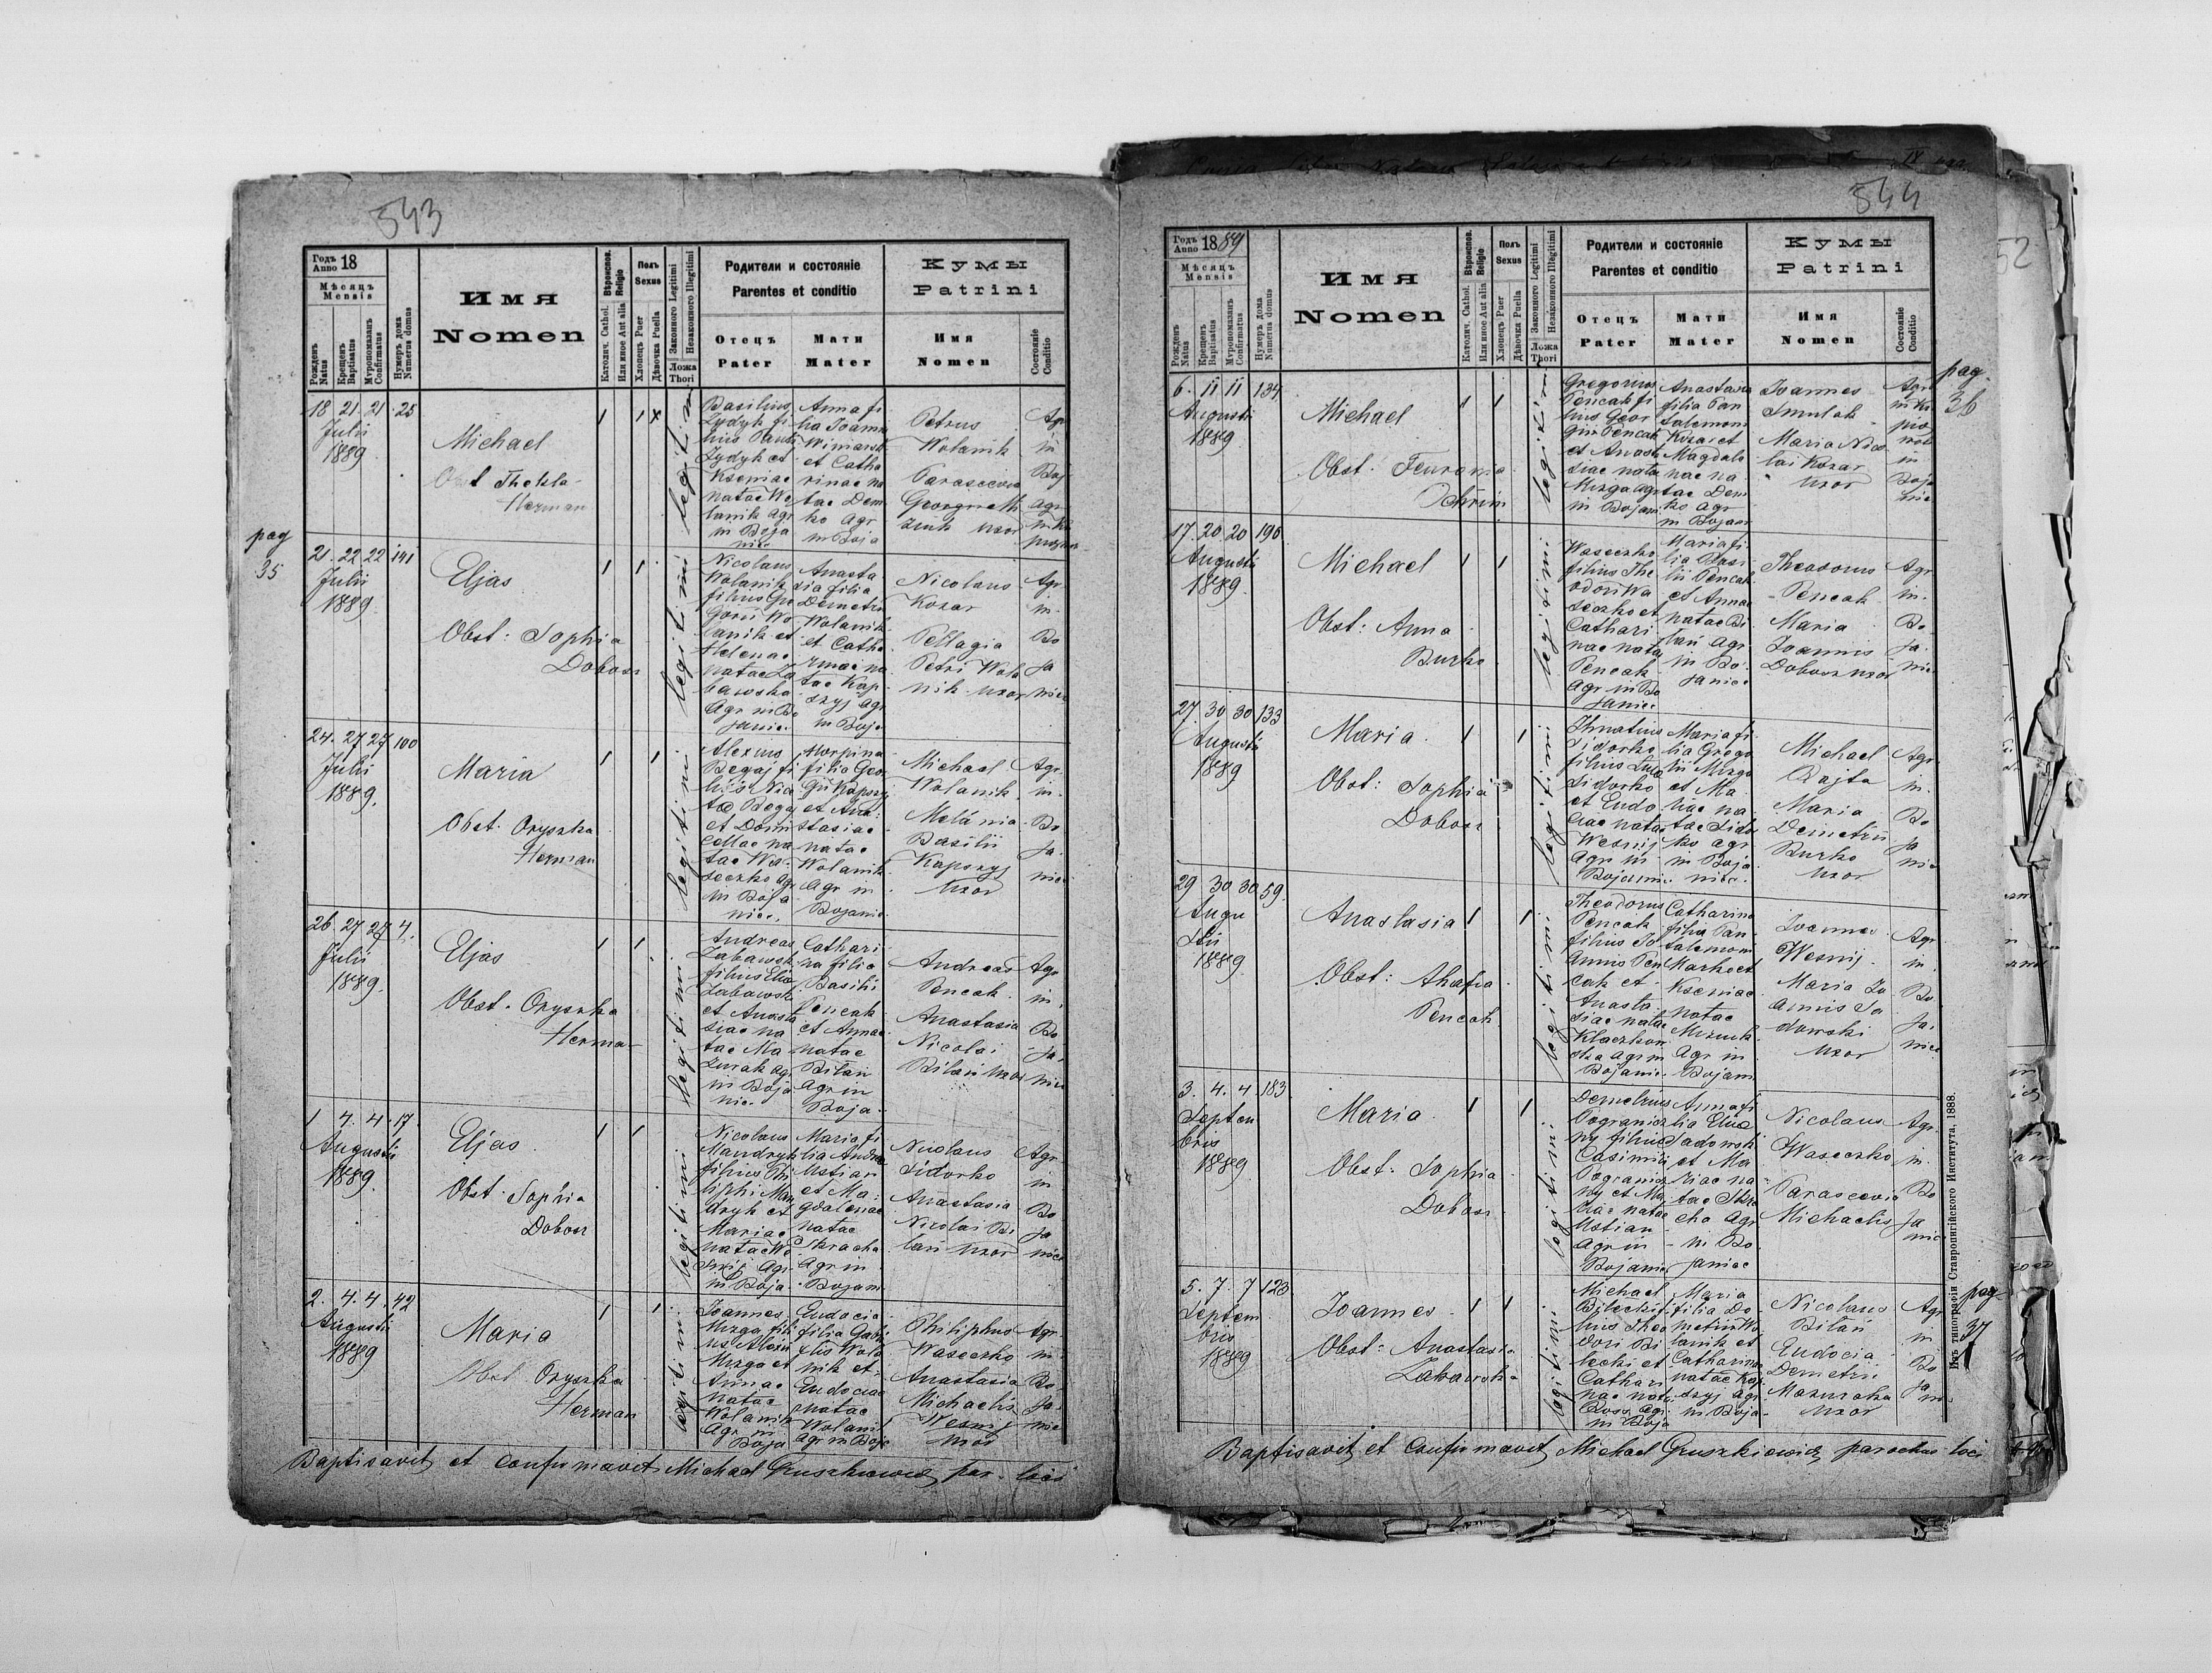 543
Годъ Anno 18
Мѣсяцъ
Mensis
Рожденъ Natus
Крещенъ Baptisatus
Мѵропомазанъ Confirmatus
Нумеръ дома Numerus domus
Имя
Nomen
Вѣроиспов. Religio
Католич. Cathol.
Или иное Aut alia
Полъ Sexus
Хлопецъ Puer
Дѣвочка Puella
Законного Legitimi
Незаконного Illegitimi
Ложа
Thori
Родители и состояніе
Parentes et conditio
Отецъ
Pater
Мати
Mater
Кумы
Patrini
Имя
Nomen
Состояніе
Conditio
18 21 21 25
Julii
1889
Michael
Obst Thekla
Herman
legitimi
Basilius
Zydyk fi
lius Pauli
Zydyk et
Kseniae
natae Wo
lanik agr
in Boja
nice
Anna fi
lia Joann
Winiarsk
et Catha
rinae na
tae Dem
ko agr
in Boja
Petrus
Wolanik
Parascevia
uxor
Agr
in
Boj
agr
pag
35
21. 22 22 141
Julii
1889
Eljas
Obst: Sophia
Dobosz
legitimi
Nicolaus
Wolanik
filius Gre
gorii Wo
lanik et
Helenae
natae Za
bawska
Agr in Bo
janice
Anasta
sia filia
Demetrii
Wolanik
et Catha
rinae na
tae Kap
szyj agr
in Boja
Nicolaus
Kozar
Pellagia
Petri Wola
nik uxor
Agr
in
Bo
ja
nice
24. 27 27 100
Julii
1889.
Maria
Obst. Oryszka
Herman
legitimi
Alexius
Begaj fi
lius Nice
ta Begaj
et Domi
cellae na
tae Wa
seczko agr
in Boja
nice.
Horpina
filia Geor
gii Kapszyj
et Ana
stasiae
natae
Wolanik
Agr in
Bojanic
Michael
Wolanik
Melania
Basilii
Kapszyj
uxor
Agr.
in.
Bo
ja
nice
26. 27 27 4.
Julii
1889.
Eljas
Obst. Oryszka
Herman
legitimi
Andreas
Zabawsk
filius Eliae
Zabawsk
et Anasta
siae na
tae Ma
zurak agr
in Boja
nic.
Cathari
na filia
Basilii
Pencak
et Annae
natae
Bilan
Agr in
Boja
Andreas
Pencak
Anastasia
Nicolai
Bilan uxor
Agr
in.
Bo
ja
nice
1 4. 4. 17.
Augusti
1889.
Eljas
Obst. Sophia
Dobosz
legitimi
Nicolaus
Mandryk
filius Phi
liphi Man
dryk et
Mariae
natae Wo
Agr.
in Boja
Maria fi
lia Andrea
Ustian
et Ma
gdalenae
natae
Skracha
Agr in
Bojani
Nicolaus
Sidorko
Anastasia
Nicolai Bi
lan uxor
Agr
in
Bo
ja
nice
2. 4. 4. 42
Augusti
1889
Maria
Obst Oryszka
Herman
legitimi
Joannes
Mrzga fili
us Alexii
Mrzga et
Annae
natae
Wolanik
Agr in
Boja
Eudocia
filia Gabri
elis Wola
nik et
Eudociae
natae
Wolanik
agr in Boja
Philiphus
Waseczko
Anastasia
Michaelis
Wesnij
uxor
Agr.
in
Bo
ja
nice
Baptisavit et confirmavit Michael Gruszkiewicz par. loci
544
Годъ Anno 1889
Мѣсяцъ
Mensis
Рожденъ Natus
Крещенъ Baptisatus
Мѵропомазанъ Confirmatus
Нумеръ дома Numerus domus
Имя
Nomen
Вѣроиспов. Religio
Католич. Cathol.
Или иное Aut alia
Полъ Sexus
Хлопецъ Puer
Дѣвочка Puella
Законного Legitimi
Незаконного Illegitimi
Ложа
Thori
Родители и состояніе
Parentes et conditio
Отецъ
Pater
Мати
Mater
Кумы
Patrini
Имя
Nomen
Состояніе
Conditio
pag.
36
6. 11 11 134
Augusti
1889
Michael
Obst. Feurona
Ochrim
legitimi
Gregorius
Pencak fi
lius Geor
gii Pencak
et Anasta
siae natae
Mrzga agr
in Bojani
Anastasia
filia Pan
talemoni
Kozar et
Magdale
nae na
tae Dem
ko agr
in Bojani
Joannes
Smulak
Maria Nico
lai Kozar
uxor
Agr
in
Boja
nice
17. 20. 20 196
Augusti
1889.
Michael
Obst: Anna
Burko
legitimi
Waseczko
filius The
odori Wa
seczko et
Cathari
nae natae
Pencak
agr in Bo
janice
Maria fi
lia Basi
lii Pencak
et Annae
natae Bi
lan Agr
in Bo
janice
Theodorus
Pencak
Maria
Joannis
Dobosz uxor
Agr
in.
Bo
ja
nice
27. 30 30 133
Augusti
1889
Maria.
Obst: Sophia
Dobosz
legitimi
Ihnatius
Sidorko
filius Luca
Sidorko
et Eudo
ciae natae
Wesnij
Agr in
Bojanic
Maria fi
lia Grego
rii Mrzga
et Ma
riae na
tae Sido
ko agr
in Boja
nice.
Michael
Bajta
Maria
Demetrii
Burko
uxor
Agr
in.
Bo
ja
nice
29 30 30 59.
Augu
sti
1889
Anastasia
Obst: Ahafia
Pencak
legitimi
Theodorus
Pencak
filius Jo
annis Pen
cak et
Anasta
siae natae
Klaczkow
ska Agr in
Bojanic.
Catharina
filia Pan
talemoni
Marko et
Kseniae
natae
Agr in
Bojani
Joannes
Wesnij.
Maria Jo
annis Sa
dowski
uxor
Agr
in
Bo
ja
nice
3. 4. 4. 183.
Septem
bris
1889
Maria.
Obst: Sophia
Dobosz
legitimi
Demetrius
Pogranicz
ny filius
Casimiri
Pogranicz
ny et Ma
riae natae
Ustian
Agr in
Bojanic
Anna fi
lia Eliae
Sadowski
et Ma
riae na
tae Skra
cha Agr
in Bo
janice
Nicolaus
Waseczko
Parascevia
Michaelis
Agr.
in.
Bo
ja
nice
pag.
37
5. 7. 7 123
Septem
bris
1889
Joannes
Obst: Anastasia
Zabawska
legitimi
Michael
Bilecki fi
lius Theo
dori Bi
lecki et
Cathari
nae natae
Agr
in Boja
Maria
filia De
metrii Wo
lanik et
Catharinae
natae Kap
szyj agr
in Boja
Nicolaus
Bilan
Eudocia
Demetrii
Mazuraka
uxor
Agr
in
Bo
ja
ni
Изъ типографіи Ставропигійского Института, 1888.
Baptisavit et Confirmavit Michael Gruszkiewicz parochus loci
52